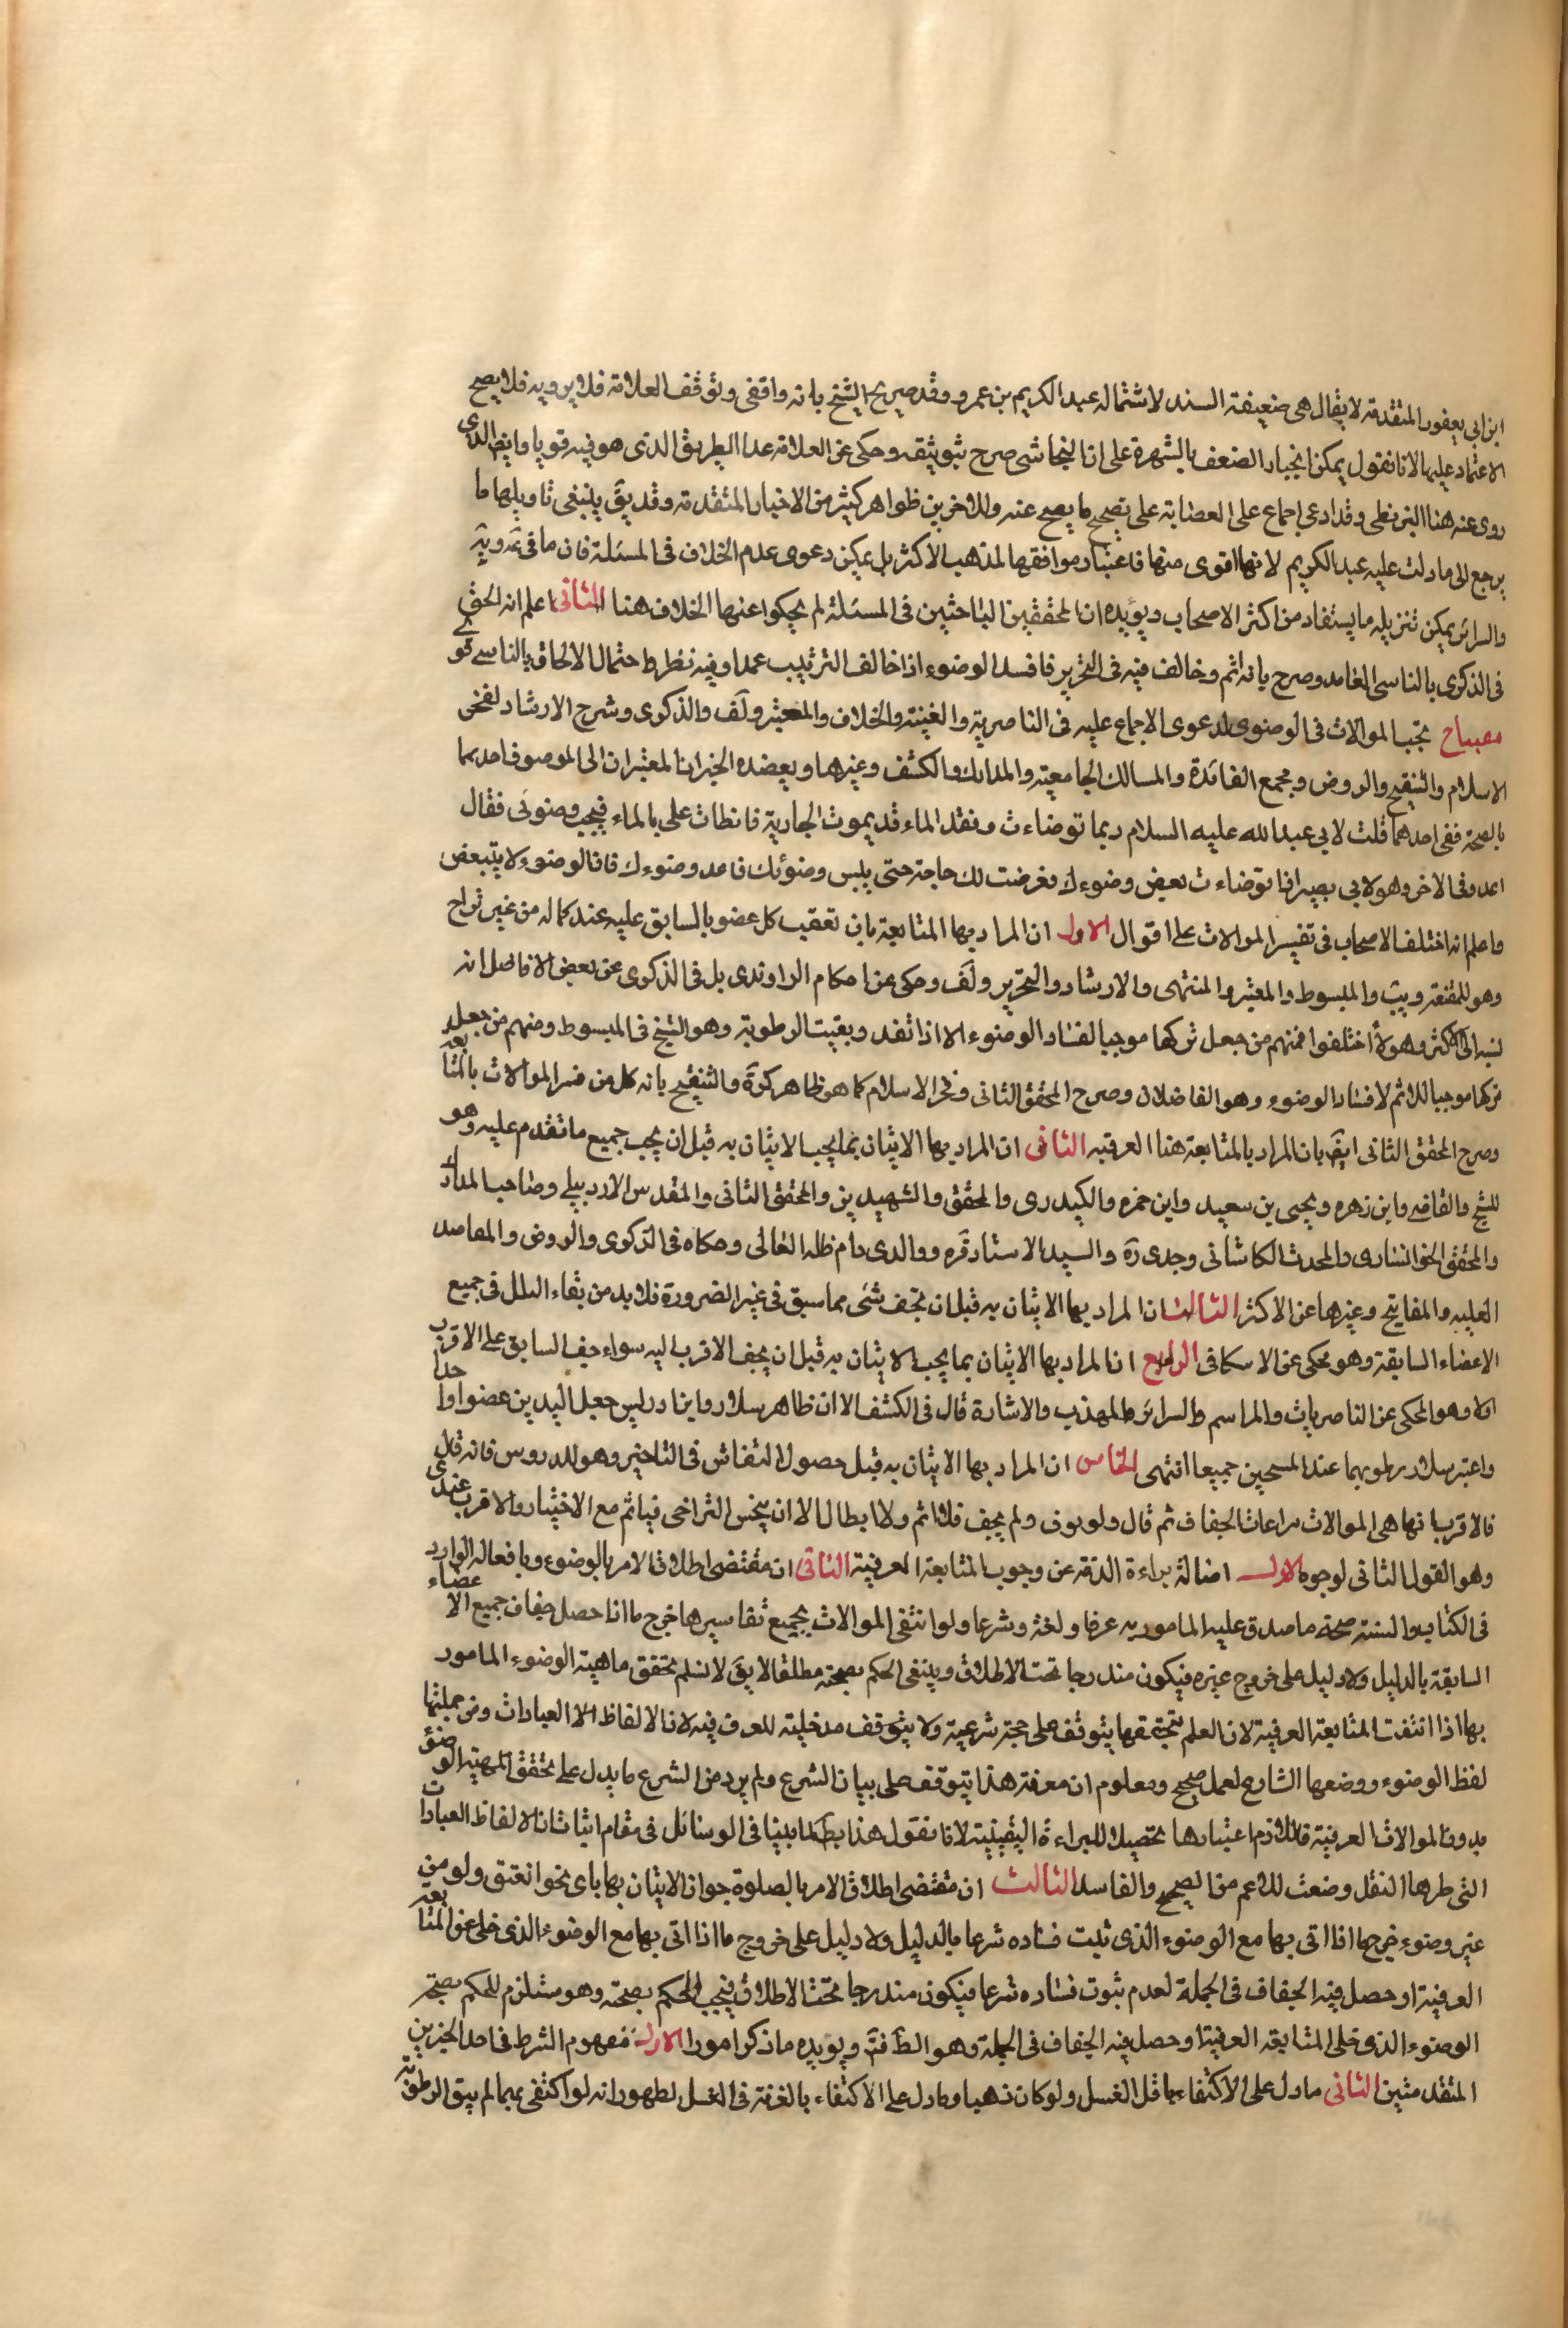 ابن ابي يعفور المتقدمة لا يقال هى ضعيفة السند لاشتماله عبد الكريم بن عمرو وقد صرح الشيخ بانه واقفى وتوقف العلامة فلا يرويه فلا يصح
الاعتماد عليها لانا نقول يمكن انجبار الضعف بالشهرة على ان النجاشى صرح بتوثيقه وحكى عن العلامة عدا الطريق الذى هو فيه قويا وايضا الذى
روى عنه هنا البزنطى وقد ادعى اجماع على العصابة على تصحيح ما يصح عنه وللاخرين ظواهر كثير من الاخبار المتقدمة وقد يق ينبغى تاويلها ما
يرجع الى ما دلت عليه عبد الكريم لانها اقوى منها فاعتبار موافقها لمذهب الاكثر بل يمكن دعوى عدم الخلاف فى المسئلة فان ما فى
والسرائر يمكن تنزيله ما يستفاد من اكثر الاصحاب ويؤيده ان المحققين الباحثين فى المسئلة لم يحكوا عنها الخلاف هنا الثانى اعلم انه الحق
فى الذكرى بالناسى العامد وصرح بانه اثم وخالف فيه فى التحرير فافسد الوضوء اذا خالف الترتيب عمدا وفيه نظر واحتمال الالحاق بالناسى قوى
مصباح يجب الموالات فى الوضوى لدعوى الاجماع عليه فى الناصرية والغينة والخلاف والمعتبر ولف والذكرى وشرح الارشاد لفخر
الاسلام والتنقيح والروض ومجمع الفائدة والمسالك الجامعية والمدارك والكشف وغيرها ويعضده الخبران المعتبران الى الموصوف احدهما
بالصحة ففى احدهما قلت لابي عبد الله عليه السلام ربما توضاءت ونفد الماء قد يموت الجارية فابطات على بالماء فيجب وضوئى فقال
اعد وفى الاخر وهو لابي بصير اذا توضاءت بعض وضوءك فعرضت لك حاجة حتى يبس وضوئك فاعد وضوءك فان الوضوء لا يتبعض
واعلم انه اختلف الاصحاب فى تفسير الموالات على اقوال الاول ان المراد بها المتابعة بان تعقيب كل عضو بالسابق عليه عند كماله من غير تراخ
وهو للمقنعة ويب والمبسوط والمعتبر والمنتهى والارشاد والتحرير ولف وحكى عن احكام الراوندى بل فى الذكرى عن بعض الافاضل انه
نسبه الى الاكثر وهولاء اختلفوا فمنهم من جعل تركها موجبا لفساد الوضوء الا اذا نفد وبقيت الرطوبة وهو الشيخ فى المبسوط ومنهم من جعل
تركها موجبا للاثم لا فساد الوضوء وهو الفاضلان وصرح المحقق الثانى وفخر الاسلام كما هو ظاهر كرة والتنقيح بانه كل من فسر الموالات بالمتابعة
وصرح المحقق الثانى ايض بان المراد بالمتابعة هنا العرفيه الثانى ان المراد بها الاتيان بما يجب الاتيان به قبل ان يجب جميع ما تقدم عليه وهو
للشيخ والقاضى وابن زهره ويحيى بن سعيد وابن حمزه والكيدرى والمحقق والشهيدين والمحقق الثانى والمقدس الاردبيلى وصاحب المدارك
والمحقق الخوانسارى والمحدث الكاشانى وجدى ره والسيد الاستاد قره ووالدى دام ظله العالى وحكاه فى الذكرى والروض والمقاصد
العليه والمفاتيح وغيرها عن الاكثر الثالث ان المراد بها الاتيان به قبل ان يجف شئى مما سبق فى غير الضرورة فلا بد من بقاء البلل فى جميع
الاعضاء السابقة وهو محكى عن الاسكافى الرابع ان المراد بها الاتيان بما يجب الاتيان به قبل ان يجف الاقرب اليه سواء جف السابق على الاقرب
ام لا وهو المحكى عن الناصريات والمراسم والسرائر والمهذب والاشارة قال فى الكشف الا ان ظاهر سلار وابن ادريس جعل اليدين عضوا واحدا
واعتبر سلار رطوبهما عند المسحين جميعا انتهى الخامس ان المراد بها الاتيان به قبل حصول التفاحش فى التاخير وهو للدروس فانه قال
فالاقرب انها هى الموالات مراعات الجفاف ثم قال ولو والى ولم يجف فلا اثم ولا ابطال الا ان يفحش التراخى فياثم مع الاختيار والاقرب عندى
وهو القول الثانى لوجوه الاول اصالة براءة الذمة عن وجوب المتابعة العرفية الثانى ان مقتضى اطلاق الامر بالوضوء وبافعاله الوارد
فى الكتاب والسنة صحة ما صدق عليه المامور به عرفا ولغة وشرعا ولو انتفى الموالات بجميع تفاسيرها خرج ما اذا حصل جفاف جميع الاعضاء
السابقة بالدليل ولا دليل على خروج غيره فيكون مندرجا تحت الاطلاق وينبغى الحكم بصحته مطلقا لا يق لا نسلم تحقق ماهية الوضوء المامور
بها اذا انتفت المتابعة العرفية لان العلم بتحققها يتوقف على حجة شرعية ولا يتوقف مدخلية للعرف فيه لان الالفاظ العبادات ومن جملتها
لفظ الوضوء ووضعها الشارع لعمل صحيح ومعلوم ان معرفة هذا يتوقف على بيان الشرع ولم يرد من الشرع ما يدل على تحقق المهية الوضوء
بدون الموالات العرفية فاللازم اعتبارها تحصيلا للبراءة اليقينية لانا نقول هذا بط لما بينا فى الوسائل فى مقام اثبات ان الالفاظ العبادات
التى طرها النقل وضعت للاعم من الصحيح والفاسد الثالث ان مقتضى اطلاق الامر بالصلوة جواز الاتيان بها باى نحو اتفق ولو من
غير وضوء خرج ما اذا اتى بها مع الوضوء الذى ثبت فساده شرعا بالدليل ولا دليل على خروج ما اذا اتى بها مع الوضوء الذى خلى عن المتابعة
العرفية او حصل فيه الجفاف فى الجملة لعدم ثبوت فساده شرعا فيكون مندرجا تحت الاطلاق فيجب الحكم بصحته وهو مستلزم للحكم بصحة
الوضوء الذى خلى المتابعة العرفية او حصل فيه الجفاف فى الجملة وهو الظ فتم ويؤيده ما ذكر امور الاول مفهوم الشرط فى احد الخبرين
المتقدمتين الثانى ما دل على الاكتفاء باقل الغسل ولو كان دهنا وما دل على الاكتفاء بالغرفة فى الغسل لظهور انه لو اكتفى بهما لم يبق الرطوبة